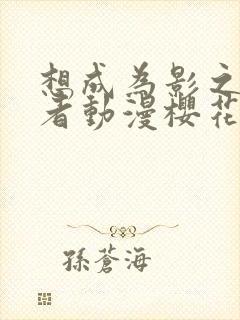 想成為影之
者動漫櫻花
孫蒼海